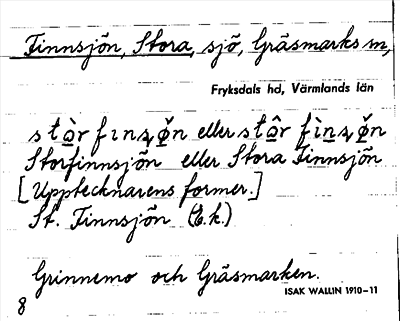 Finnsjön, Stora, sjö, Gräsmarks sn,
Fryksdals hd, Värmlands län
eller
Storfinnsjön eller Stora Finnsjön
[Upptecknarens former.]
St. Finnsjön (E.k.)
Grinnemo och Gräsmarken.
ISAK WALLIN 1910-11
8